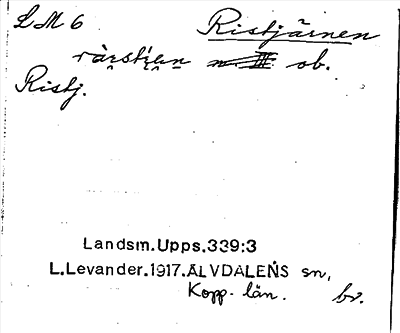 LM 6 Ristjärnen
ob.
Ristj.
Landsm.Upps.339:3
L.Levander.1917.ÄLVDALENS sn,
Kopp. län. bv.